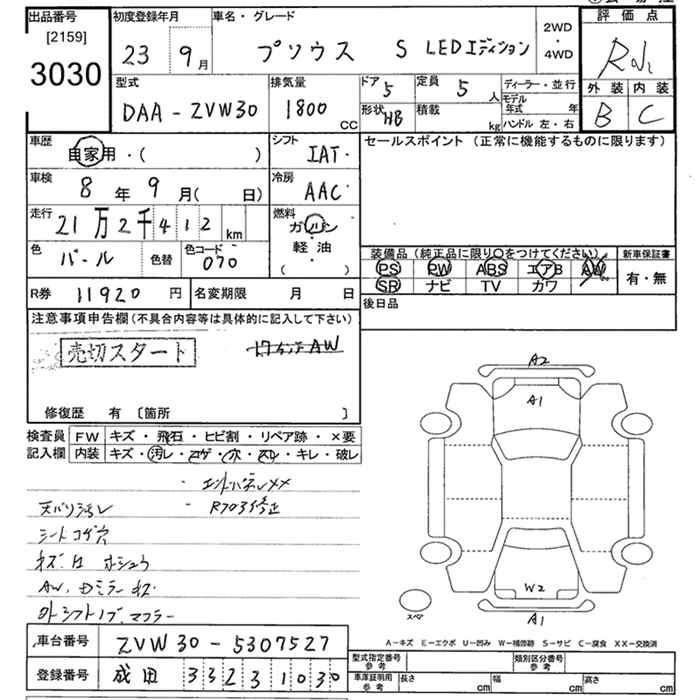 出品番号 初度登録年月 車名・グレード 評価点
[2159]
3030
23 9月 プリウス S LEDエディション
2WD・4WD
外装 内装
B C
型式 排気量 ドア 5 定員 5人 ディーラー・並行
DAA-ZVW30 1800cc 形状 HB 積載 kg モデル年式 年
ハンドル 左・右
車歴 自家用・( ) シフト IAT セールスポイント (正常に機能するものに限ります)
車検 8年9月( 日) 冷房 AAC
走行 21万2千412km 燃料 ガソリン・軽油・( )
色 パール 色替 色コード 070
装備品(純正品に限り○をつけてください) 新車保証書
PS PW ABS エアB AW 有・無
SR ナビ TV カワ
R券 11920円 名変期限 月 日 後日品
注意事項申告欄(不具合内容等は具体的に記入して下さい)
売切スタート
17インチAW
修復歴 有 〔箇所 〕
検査員記入欄 FW キズ・飛石・ヒビ割・リペア跡・×要
内装 キズ・汚レ・コゲ・穴・スレ・キレ・破レ
エンドパネルXX
天バリ汚レ
シートコゲ穴
AW、ドミラーキズ
外シフトノブ、マフラー
A2
A1
W2
スペア
A1
A-キズ E-エクボ U-凹み W-補修跡 S-サビ C-腐食 XX-交換済
車台番号 ZVW30-5307527
登録番号 成田 332 3 1030
型式指定番号 参考 類別区分番号 参考
車庫証明用 参考 長さ cm 幅 cm 高さ cm